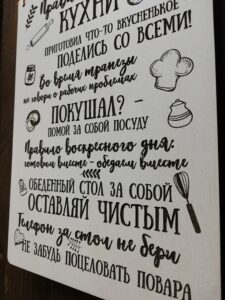 Правила
КУХНИ
ПРИГОТОВИЛ ЧТО-ТО ВКУСНЕНЬКОЕ
ПОДЕЛИСЬ СО ВСЕМИ!
Во время трапезы
не говори о рабочих проблемах
ПОКУШАЛ? -
ПОМОЙ ЗА СОБОЙ ПОСУДУ
Правило воскресного дня:
готовим вместе - обедаем вместе
ОБЕДЕННЫЙ СТОЛ ЗА СОБОЙ
ОСТАВЛЯЙ ЧИСТЫМ
Телефон за стол не бери
НЕ ЗАБУДЬ ПОЦЕЛОВАТЬ ПОВАРА